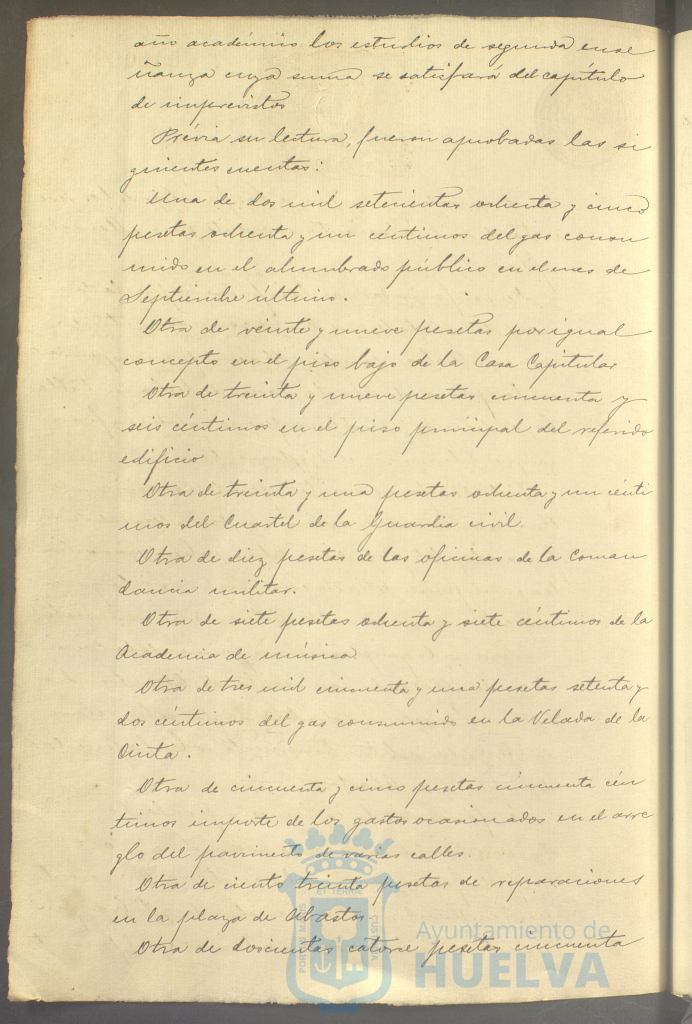 año académico los estudios de segunda ense
ñanza cuya suma se satisfará del capítulo
de imprevistos
Prévia su lectura, fueron aprobadas las si
guientes cuentas:
Una de dos mil setecientas ochenta y cinco
pesetas ochenta y un céntimos del gas consu
mido en el alumbrado público en el mes de
Septiembre último.
Otra de veinte y nueve pesetas por igual
concepto en el piso bajo de la Casa Capitular
Otra de treinta y nueve pesetas cincuenta y
seis céntimos en el piso principal del referido
edificio
Otra de treinta y una pesetas ochenta y un cénti
mos del Cuartel de la Guardia civil.
Otra de diez pesetas de las oficinas de la Coman
dancia militar.
Otra de siete pesetas ochenta y siete céntimos de la
Academia de música
Otra de tres mil cincuenta y una pesetas setenta y
dos céntimos del gas consumido en la Velada de la
Cinta.
Otra de cincuenta y cinco pesetas cincuenta cén
timos importe de los gastos ocasionados en el arre
glo del pavimento de varias calles.
Otra de ciento treinta pesetas de reparaciones
en la plaza de Abastos
Otra de doscientas catorce pesetas cincuenta
Ayuntamiento de
HUELVA